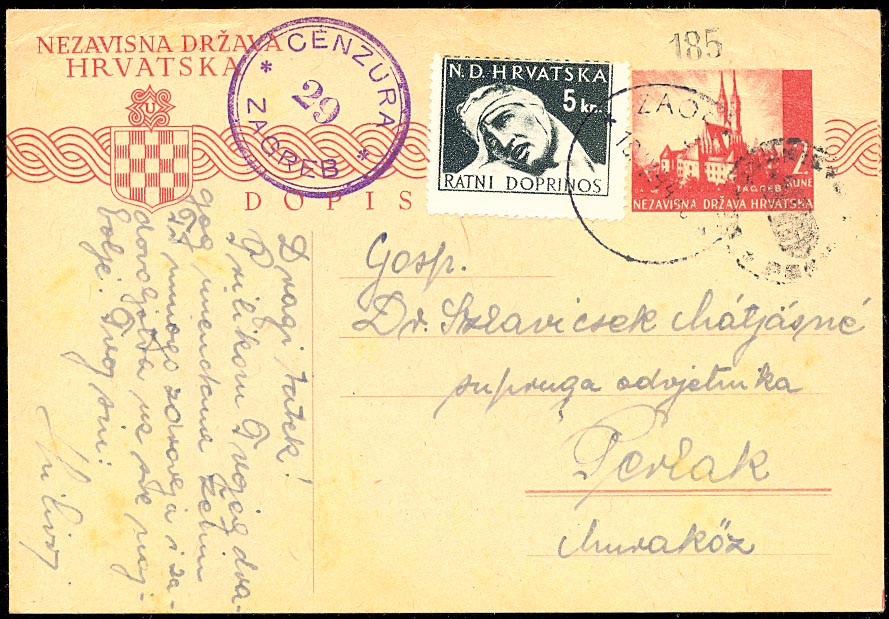 NEZAVISNA DRŽAVA
HRVATSKA
CENZURA
29
ZAGREB
185
N.D. HRVATSKA
5 kn.
RATNI DOPRINOS
ZAGREB
2
KUNE
NEZAVISNA DRŽAVA HRVATSKA
U
DOPIS
Gosp.
Dr. Szlavicsek Mátyásné
supruga odvjetnika
Perlak
Muraköz
Dragi tatek!
Prilikom Tvojeg dva-
imendana želim
Ti mnogo zdravlja i za-
dovoljstva na sve naj-
bolje! Tvoj sin: